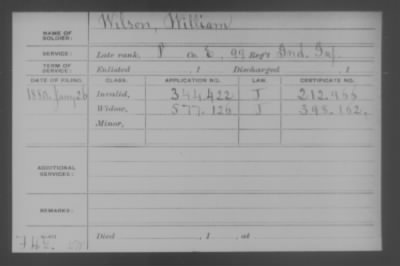 NAME OF SOLDIER: Wilson, William
SERVICE: Late rank, P Co. E, 99 Reg't Ind. Inf.
TERM OF SERVICE: Enlisted , 1 Discharged , 1
DATE OF FILING. CLASS. APPLICATION NO. LAW. CERTIFICATE NO.
1880. Jany 26 Invalid, 344.422 J 212.966
Widow, 577.126 J 398.162.
Minor,
ADDITIONAL SERVICES:
REMARKS:
Died , 1 , at